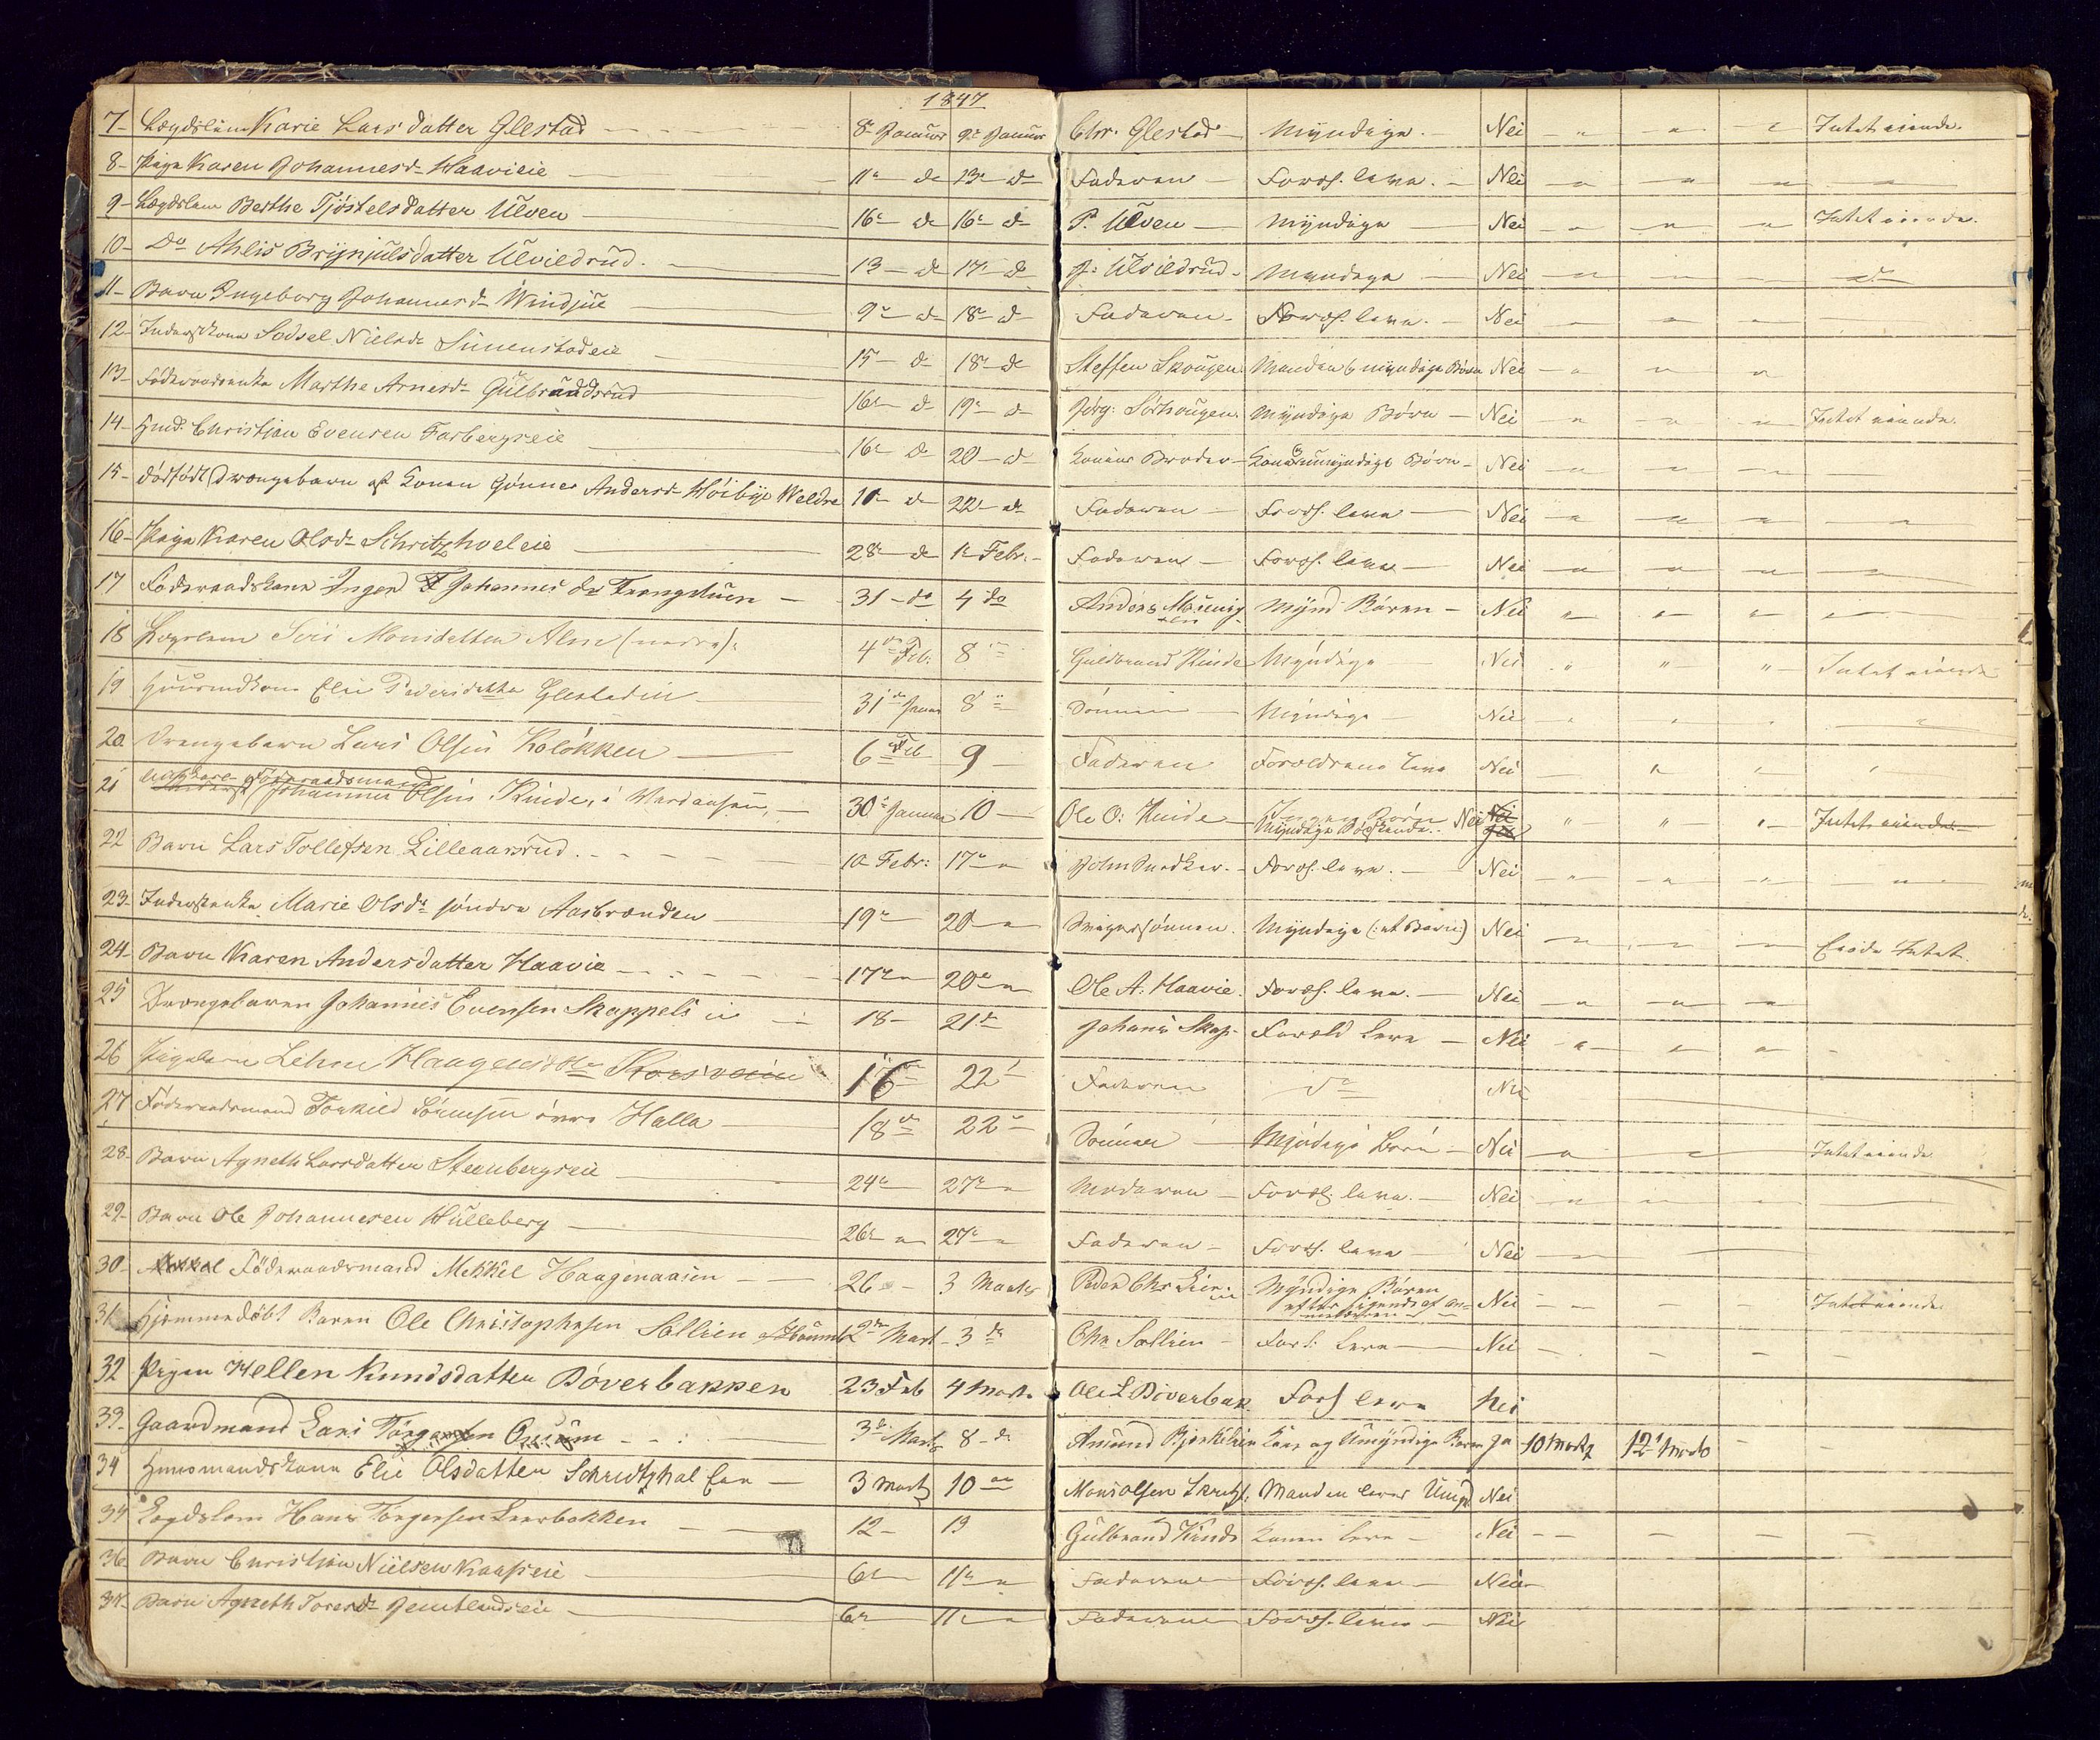 1847
7- Lægdslem Karie Lars datter Glestad 8de Januar 9de Januar Chr. Glestad Myndige. Nei " " " Intet eiende.
8- Pige Karen Johannesdr Haavieie 11te do 13de do Faderen Foræl. leve. Nei " " "
9- Lægdslem Berthe Tjøstelsdatter Ulven 16de do 16de do P. Ulven Myndige Nei " " " Intet eiende.
10- Do Ahlis Brynjulsdatter Ulvildrud. 13 do 17 do J: Ulvildrud. Myndige Nei " " " do
11- Barn Ingeborg Johannesdr Windju 9de do 18de do Faderen Foræl. leve. Nei
12- Inderstkone Sidsel Nielsdr Simenstadeie 15 do 18de do Steffen Skougen Manden 6 myndige Børn Nei " " "
13- Føderaadsenke Marthe Arnesdr Gulbrandsrud 16de do 19de do Jørg: Sørhougen. Myndige Børn Nei " " " Intet eiende.
14- Hmd. Christian Evensen Farbergseie 16de do 20 do Konens Broder Kone 3 umyndige Børn Nei " " "
15- Dødfødt Drengebarn af Konen Gunner Andersdr Høibye Weldre 18 do 22 do Faderen Foræl. leve Nei " " "
16- Pige Karen Olsdr Schritzhoveleie 28de do 1te Febr. Faderen Foræl. leve Nei " " "
17 Føderaadskone Inger Johannesdr Frengstuen 31 do 4 do Anders Mæhnig Mynd Børen Nei " " "
18 Lægslem Siri Monsdatter Alm (nedre) 4de Feb. 8 Guldbrand Kinde Myndige Nei " " " Intet eiende
19 Huusmdkone Elie Pedersdatter Glestadeie 31de Januar 8 Sønnen Myndige Nei
20 Drengebarn Lars Olsen Koløkken 6 Feb 9 Faderen Forældrene leve Nei
21 Føderaadsmand
Johannes Olsen Kinde, i Vardaasen, 30 Januar 10 Ole O: Kinde Ingen Børn
Myndige Nei " " " Intet eiende
22 Barn Lars Tollefsen Lilleaasrud. 10 Febr: 17de John Foræl. leve. Nei " " "
23- Inderstenke Marie Olsdr søndre Aasbrænden 19de 20 Svigersønnen. Myndige (: et Barn:) Nei Eiede Intet.
24- Barn Karen Andersdatter Haavie 17de 20de Ole A. Haavie. Foræl. leve. Nei " " "
25 Drengebarn Johannes Evensen Skappels eie 18 21de Johans Skap. Foræld leve Nei " " "
26 Pigebarn Lehne Haagensdtr Korsveien 16 22 Faderen do Nei
27 Føderaadsmand Torkild Sørensen øvre Halla 18de 22 Sønner Myndige Børn Nei " " Intet eiende
28- Barn Agneth Larsdatter Steenbergseie 24de 27de Moderen Foræl. leve. Nei " " "
29- Barn Ole Johannesen Hulleberg 26de 27de Faderen Foræl. leve Nei
30- Føderaadsmand Mekkel Haagenaasen 26 3 Marts Peder Chr. Lier Myndige Børen
efter sigende af An=
melderen Nei Intet eiende.
31 Hjemmedøbt Baren Ole Christophersen Sollien 2den Mart 3 do Chr Sollien For. leve Nei
32 Pigen Hellen Knudsdatter Døverbakken 23 Feb 4 Marts Ole L Døverbak. Foræl leve Nei
33- Gaardmand Lars Torgersen Onsum 3de Marts 8 do Amund Bjerkelien Kone og Umyndige Baren Ja 10 Marts 12te Marts
34 Huusmandskone Elie Olsdatter Schrutzhol Eie 3 Marts 10 Mons Olsen Skrutzl. Manden lever Umyd Nei
35 Lægdslem Hans Torgersen Leerbakken 12 13 Gulbrand Kinde Konen leve Nei
36- Barn Christian Nielsen Kaaseie 6te 11te Faderen Foræl. leve Nei
37- Barn Agneth Toresdr Jemtlandseie 6te 11te Faderen Foræl. leve Nei